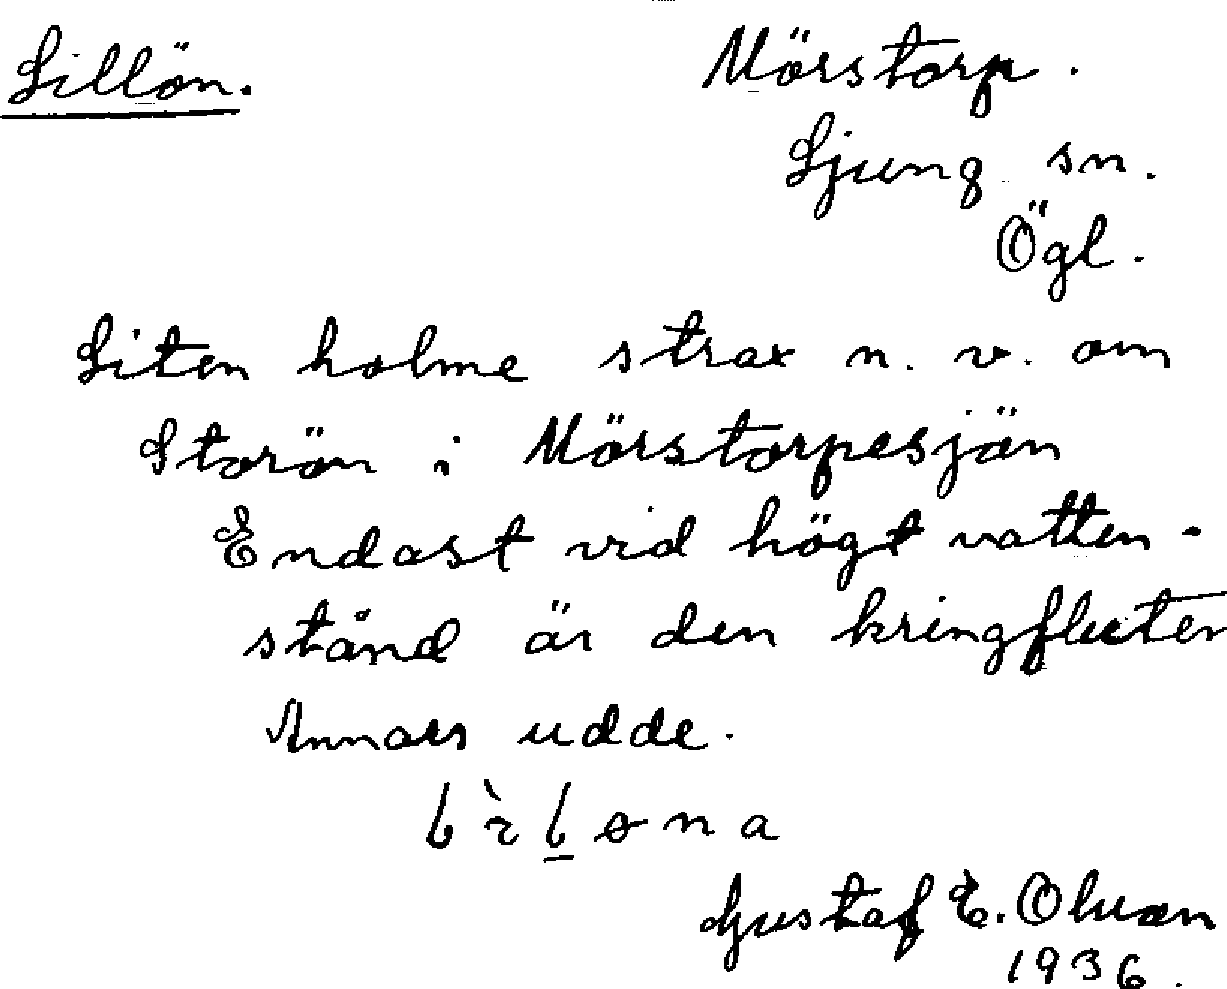 Lillön.
Mörstorp.
Ljung sn.
Ögl.
Liten holme strax n. v. om
Storön i Mörstorpesjön
Endast vid högt vatten-
stånd är den kringfluten
Annars udde.
Gustaf E.
1936.